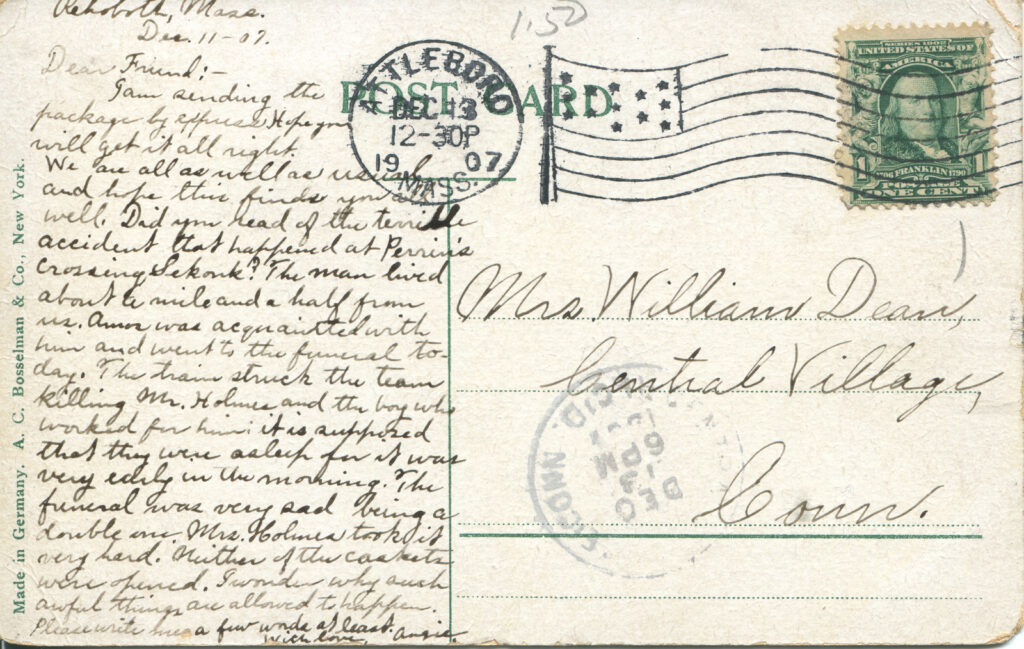 Rehoboth, Mass.
Dec. 11-07.
Dear Friend:-
I am sending the
package by express Hope you
will get it all right.
We are all as well as usual
and hope this finds you
well. Did you read of the terrible
accident that happened at Perrin's
Crossing Sekonk? The man lived
about a mile and a half from
us. Amos was acquaintted with
him and went to the funeral to-
day. The train struck the team
killing Mr. Holmes and the boy who
worked for him: it is supposed
that they were asleep for it was
very early in the morning. The
funeral was very sad being a
double one. Mrs. Holmes took it
very hard. Neither of the caskets
were opened. I wonder why such
awful things are allowed to happen.
Please write me a few words at least.
With love, Angie.
Made in Germany. A. C. Bosselman & Co., New York.
1.50
POST CARD
ATTLEBORO
DEC 13
12-30P
1907
MASS.
SERIES 1902
UNITED STATES OF
AMERICA
1 1
1706 FRANKLIN 1790
POSTAGE
ONE CENT
Mrs. William Dean,
Central Village,
Conn.
DEC
13
6PM
REC'D.
CONN